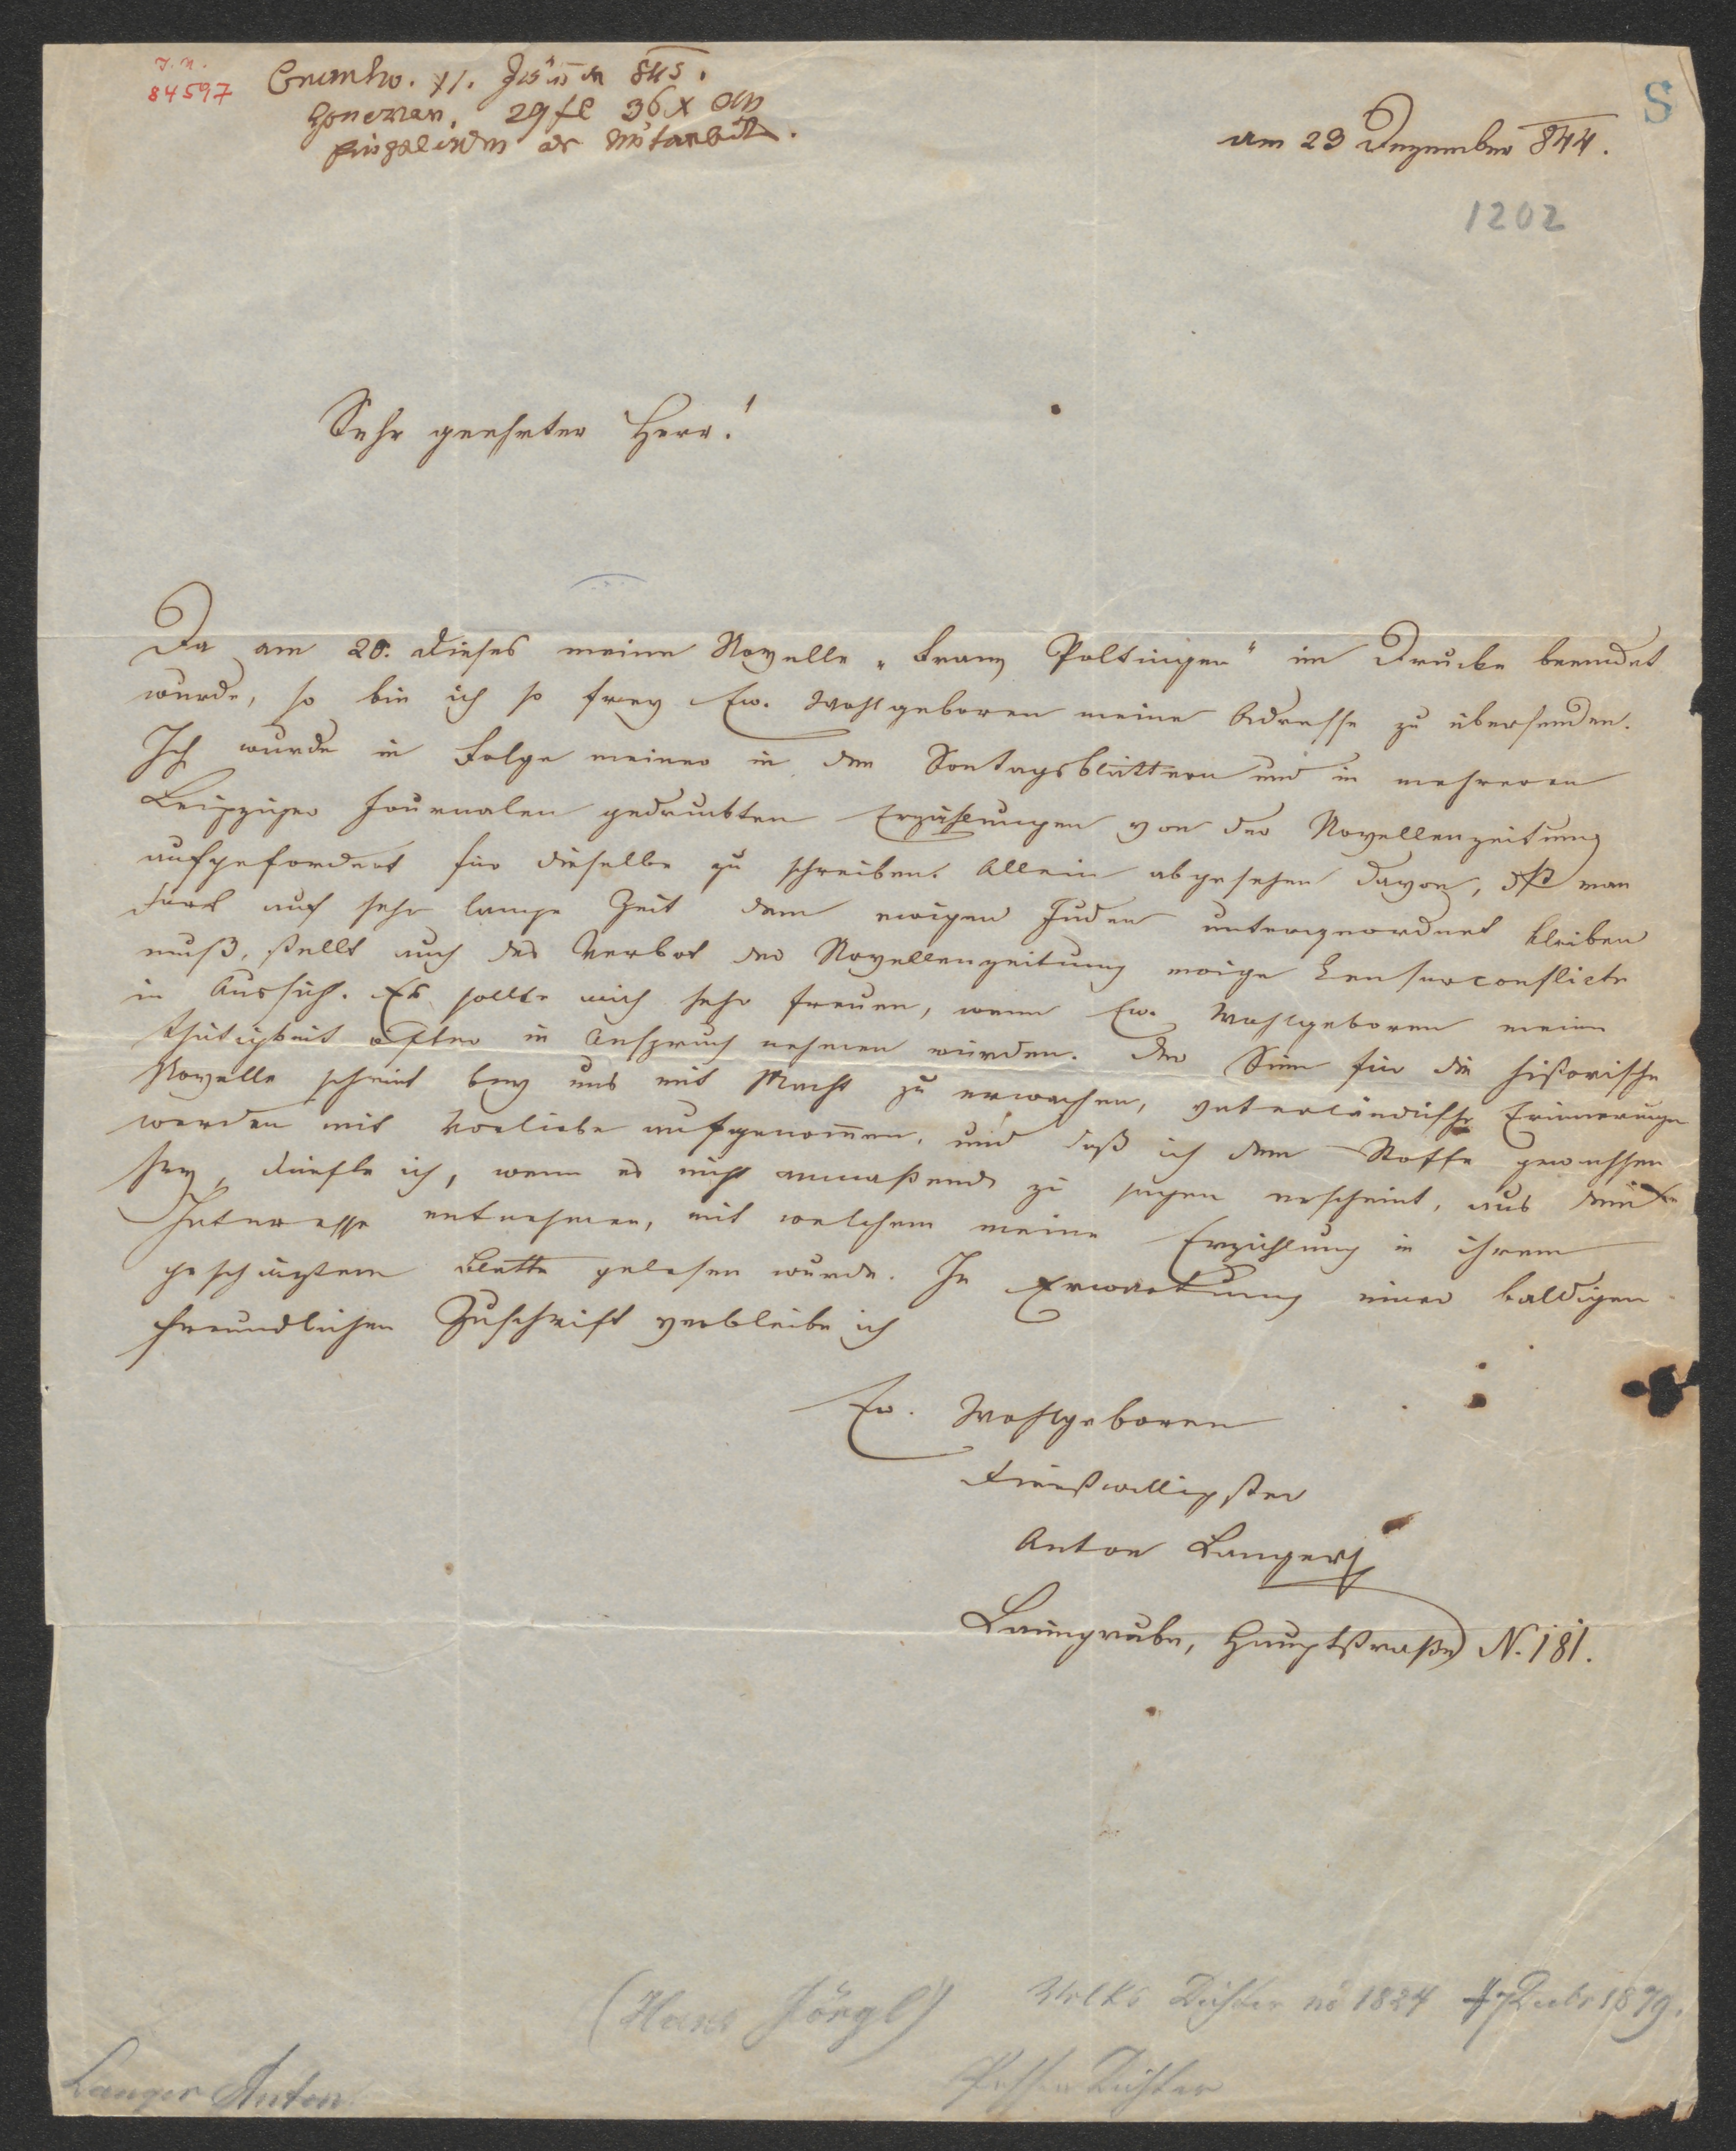 I. N.
84597
Honorar. 29 fl 36 x
am 29 Dezember 844.
S
1202
Sehr geehrter Herr!
Da am 28. dieses meine Novelle „Franz Poltinger“ im Drucke beendet
wurde, so bin ich so frey Ew. Wohlgeboren meine Adresse zu übersenden.
Ich wurde in Folge meiner in den Sontagsblättern und in mehreren
Leipziger Journalen gedruckten Erzählungen von der Novellenzeitung
aufgefordert für dieselbe zu schreiben. Allein abgesehen davon, dß man
dort auf sehr lange Zeit dem ewigen Juden untergeordnet bleiben
muß, stellt auch das Verbot der Novellenzeitung ewige Censurconflicte
in Aussicht. Es sollte mich sehr freuen, wenn Ew. Wohlgeboren meine
Thätigkeit öfter in Anspruch nehmen würden. Der Sinn für die historische
Novelle scheint bey uns mit Macht zu erwachen, vaterländische Erinnerungen
werden mit Vorliebe aufgenommen, und daß ich dem Stoffe gewachsen
sey, dürfte ich, wenn es nicht anmaßend zu sagen erscheint, aus dem
Interesse entnehmen, mit welchem meine Erzählung in ihrem
geschäzten Blatte gelesen wurde. In Erwartung einer baldigen
freundlichen Zuschrift verbleibe ich
Ew. Wohlgeboren
dienstwilligster
Anton Langer
Laimgrube, Hauptstraße N. 181.
(Hans Jörgl) Volks Dichter 1824 1879.
Possen Dichter
Langer Anton